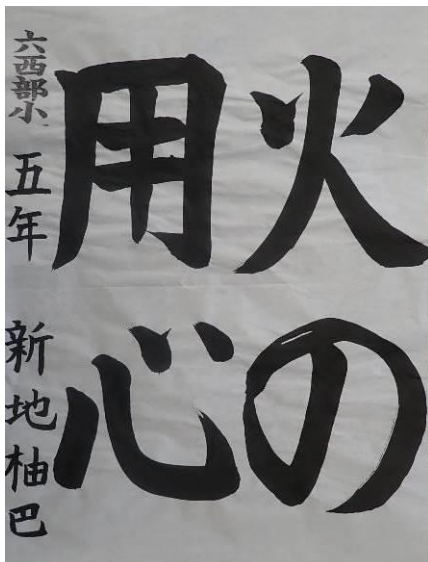 火の
用心
六西部小 五年 新地柚巴